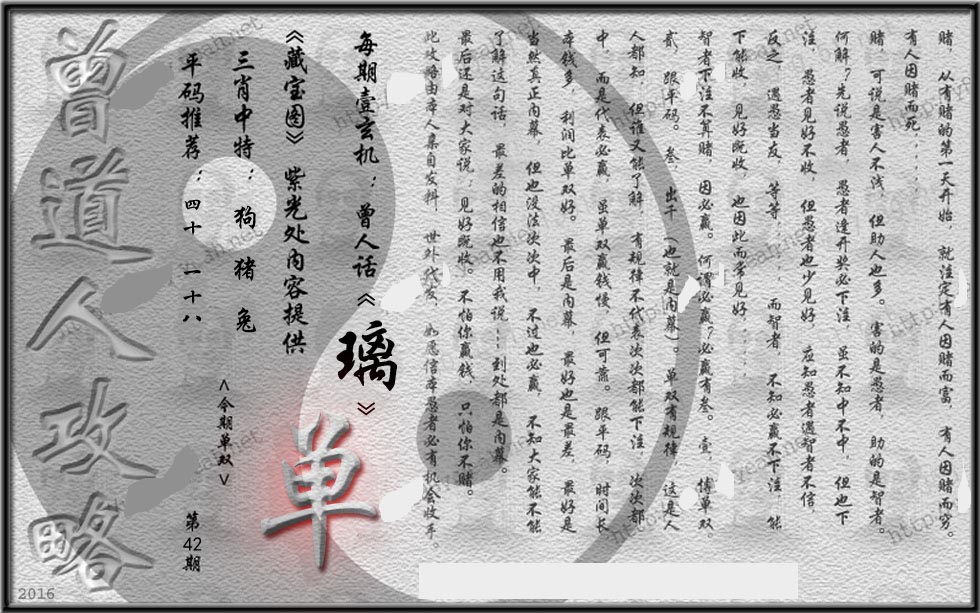 赌，从有赌的第一天开始，就注定有人因赌而富，有人因赌而穷。
有人因赌而死……
赌，可说是害人不浅，但助人也多。害的是愚者，助的是智者。
何解？先说愚者，愚者逢开奖必下注，虽不知中不中，但也下
注，愚者见好不收，但愚者也少见好，应知愚者遇智者不信，
反之，遇愚当友，等等……而智者，不知必赢不下注，能
下能收，见好既收，也因此而常见好……
智者下注不算赌，因必赢。何谓必赢？必赢有叁。壹，博单双，
贰，跟平码。叁，出千（也就是内幕）。单双有规律，这是人
人都知，但谁又能了解，有规律不代表次次都能下注，次次都
中，而是代表必赢，虽单双赢钱慢，但可靠。跟平码，时间长
本钱多，利润比单双好。最后是内幕，最好也是最差，最好是
当然真正内幕，但也没法次次中，不过也必赢，不知大家能不能
了解这句话，最差的相信也不用我说……到处都是内幕。
最后还是对大家说：见好既收。不怕你赢钱，只怕你不赌。
此攻略由本人集自发料，世外代发，如愿信本愚者必有机会收手。
每期壹玄机：曾人话《璃》
《藏宝图》紫光处内容提供
三肖中特：狗 猪 兔
平码推荐：四十 一十八
单
<今期单双>
第42期
曾道人攻略
2016